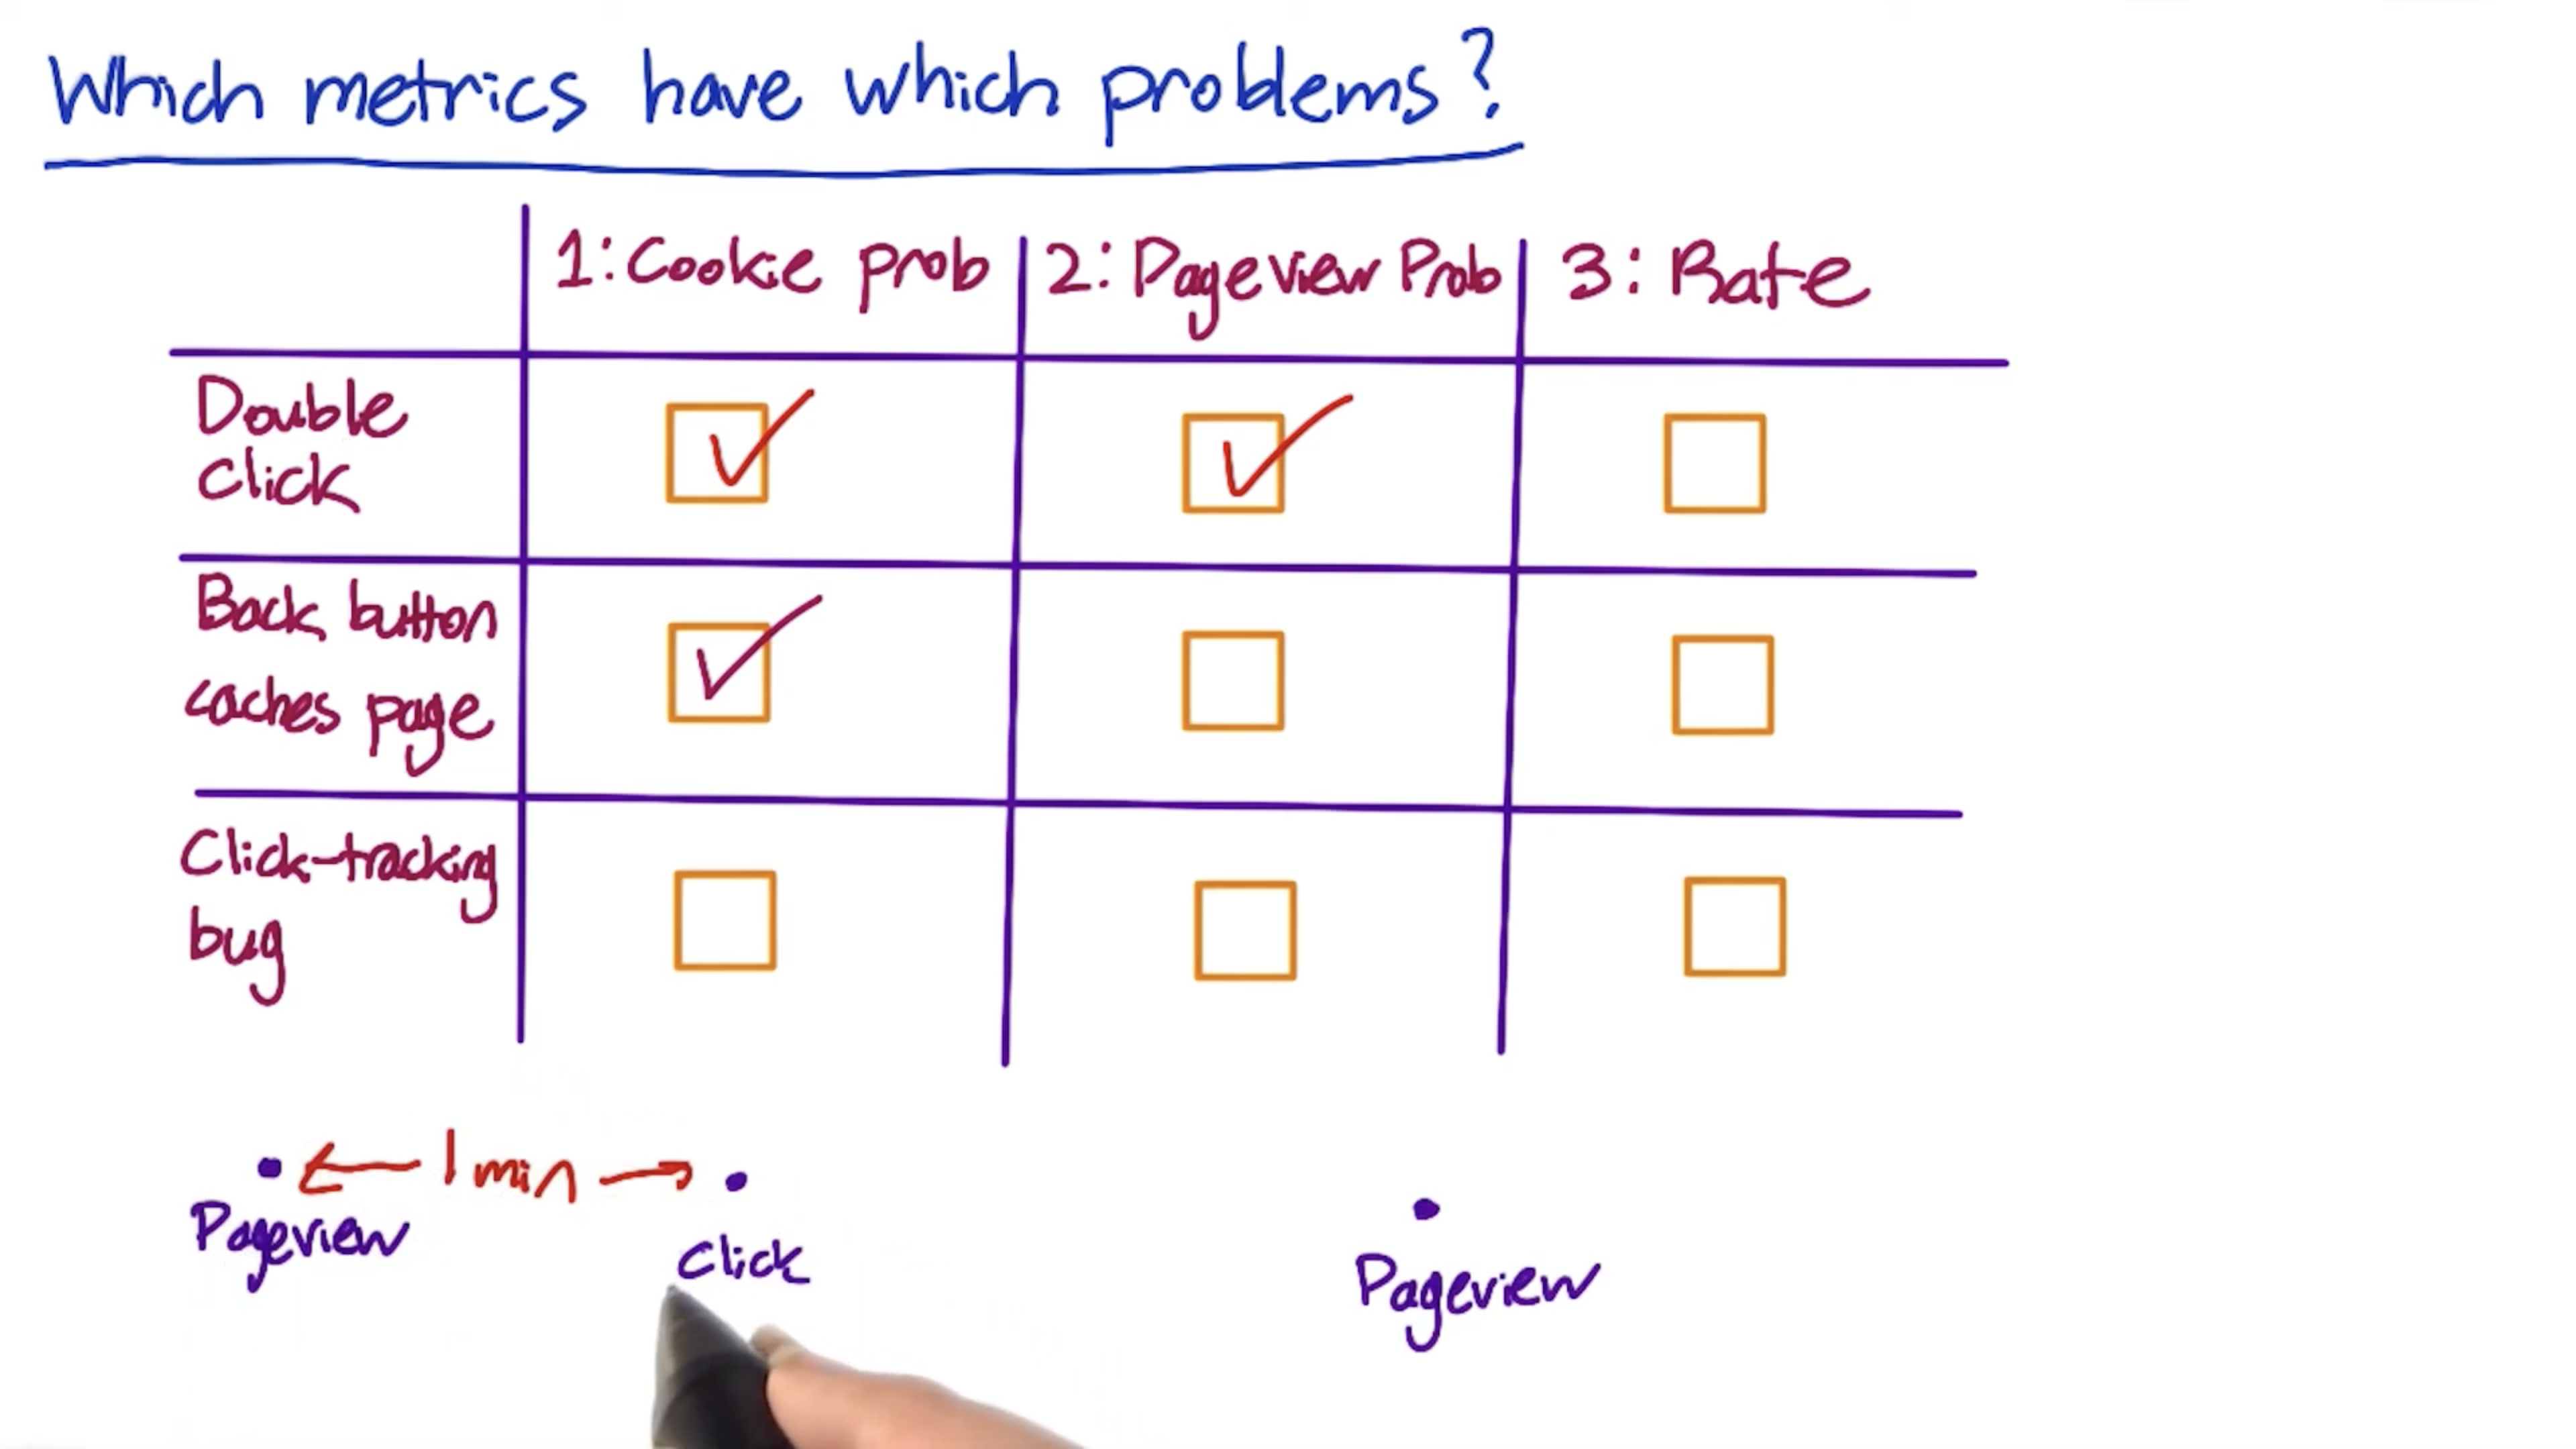 Which metrics have which problems?
1: Cookie prob
2: Pageview Prob
3: Rate
Double
click
Back button
caches page
Click-tracking
bug
1 min
Pageview
Click
Pageview